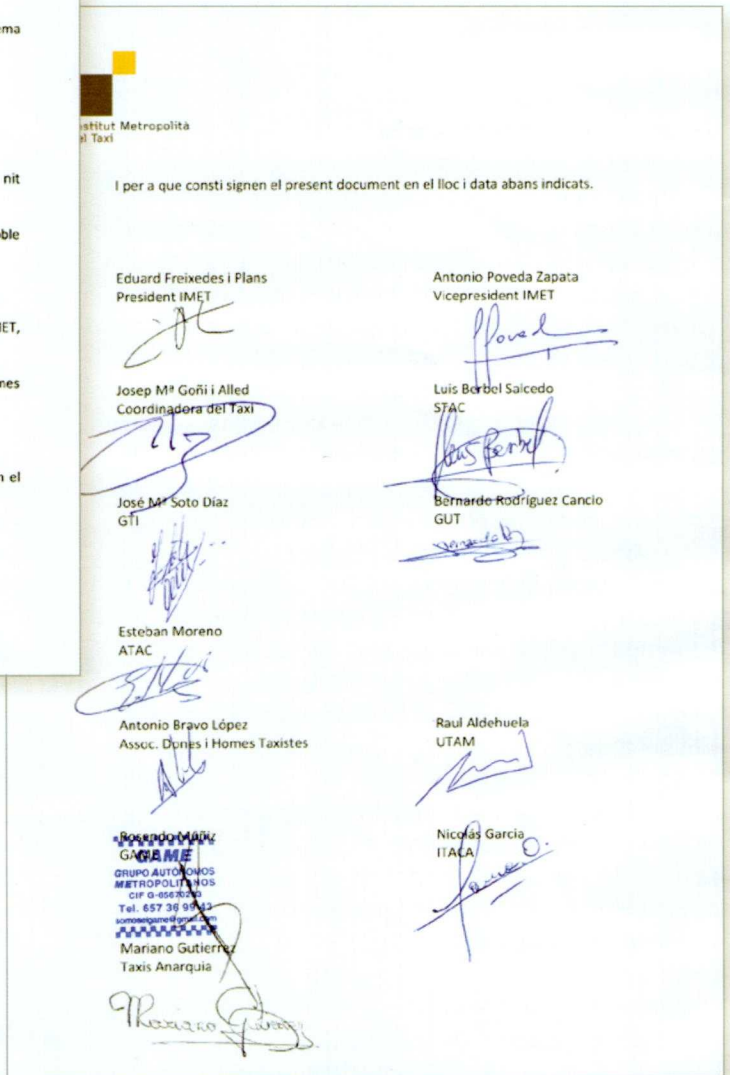 ema
nit
ble
MET,
mes
n el
stitut Metropolità
el Taxi
I per a que consti signen el present document en el lloc i data abans indicats.
Eduard Freixedes i Plans
President IMET
Antonio Poveda Zapata
Vicepresident IMET
Josep Mª Goñi i Alled
Coordinadora del Taxi
Luis Berbel Salcedo
STAC
Luis Berbel
José Mª Soto Díaz
GTI
Bernardo Rodríguez Cancio
GUT
Esteban Moreno
ATAC
Antonio Bravo López
Assoc. Dones i Homes Taxistes
Raul Aldehuela
UTAM
Rosendo Múñiz
GAME
GAME
GRUPO AUTÓNOMOS
METROPOLITANOS
CIF
Tel. 657 36 99 43
somoselgame@gmail.com
Nicolás Garcia
ITACA
Mariano Gutierrez
Taxis Anarquia
Mariano